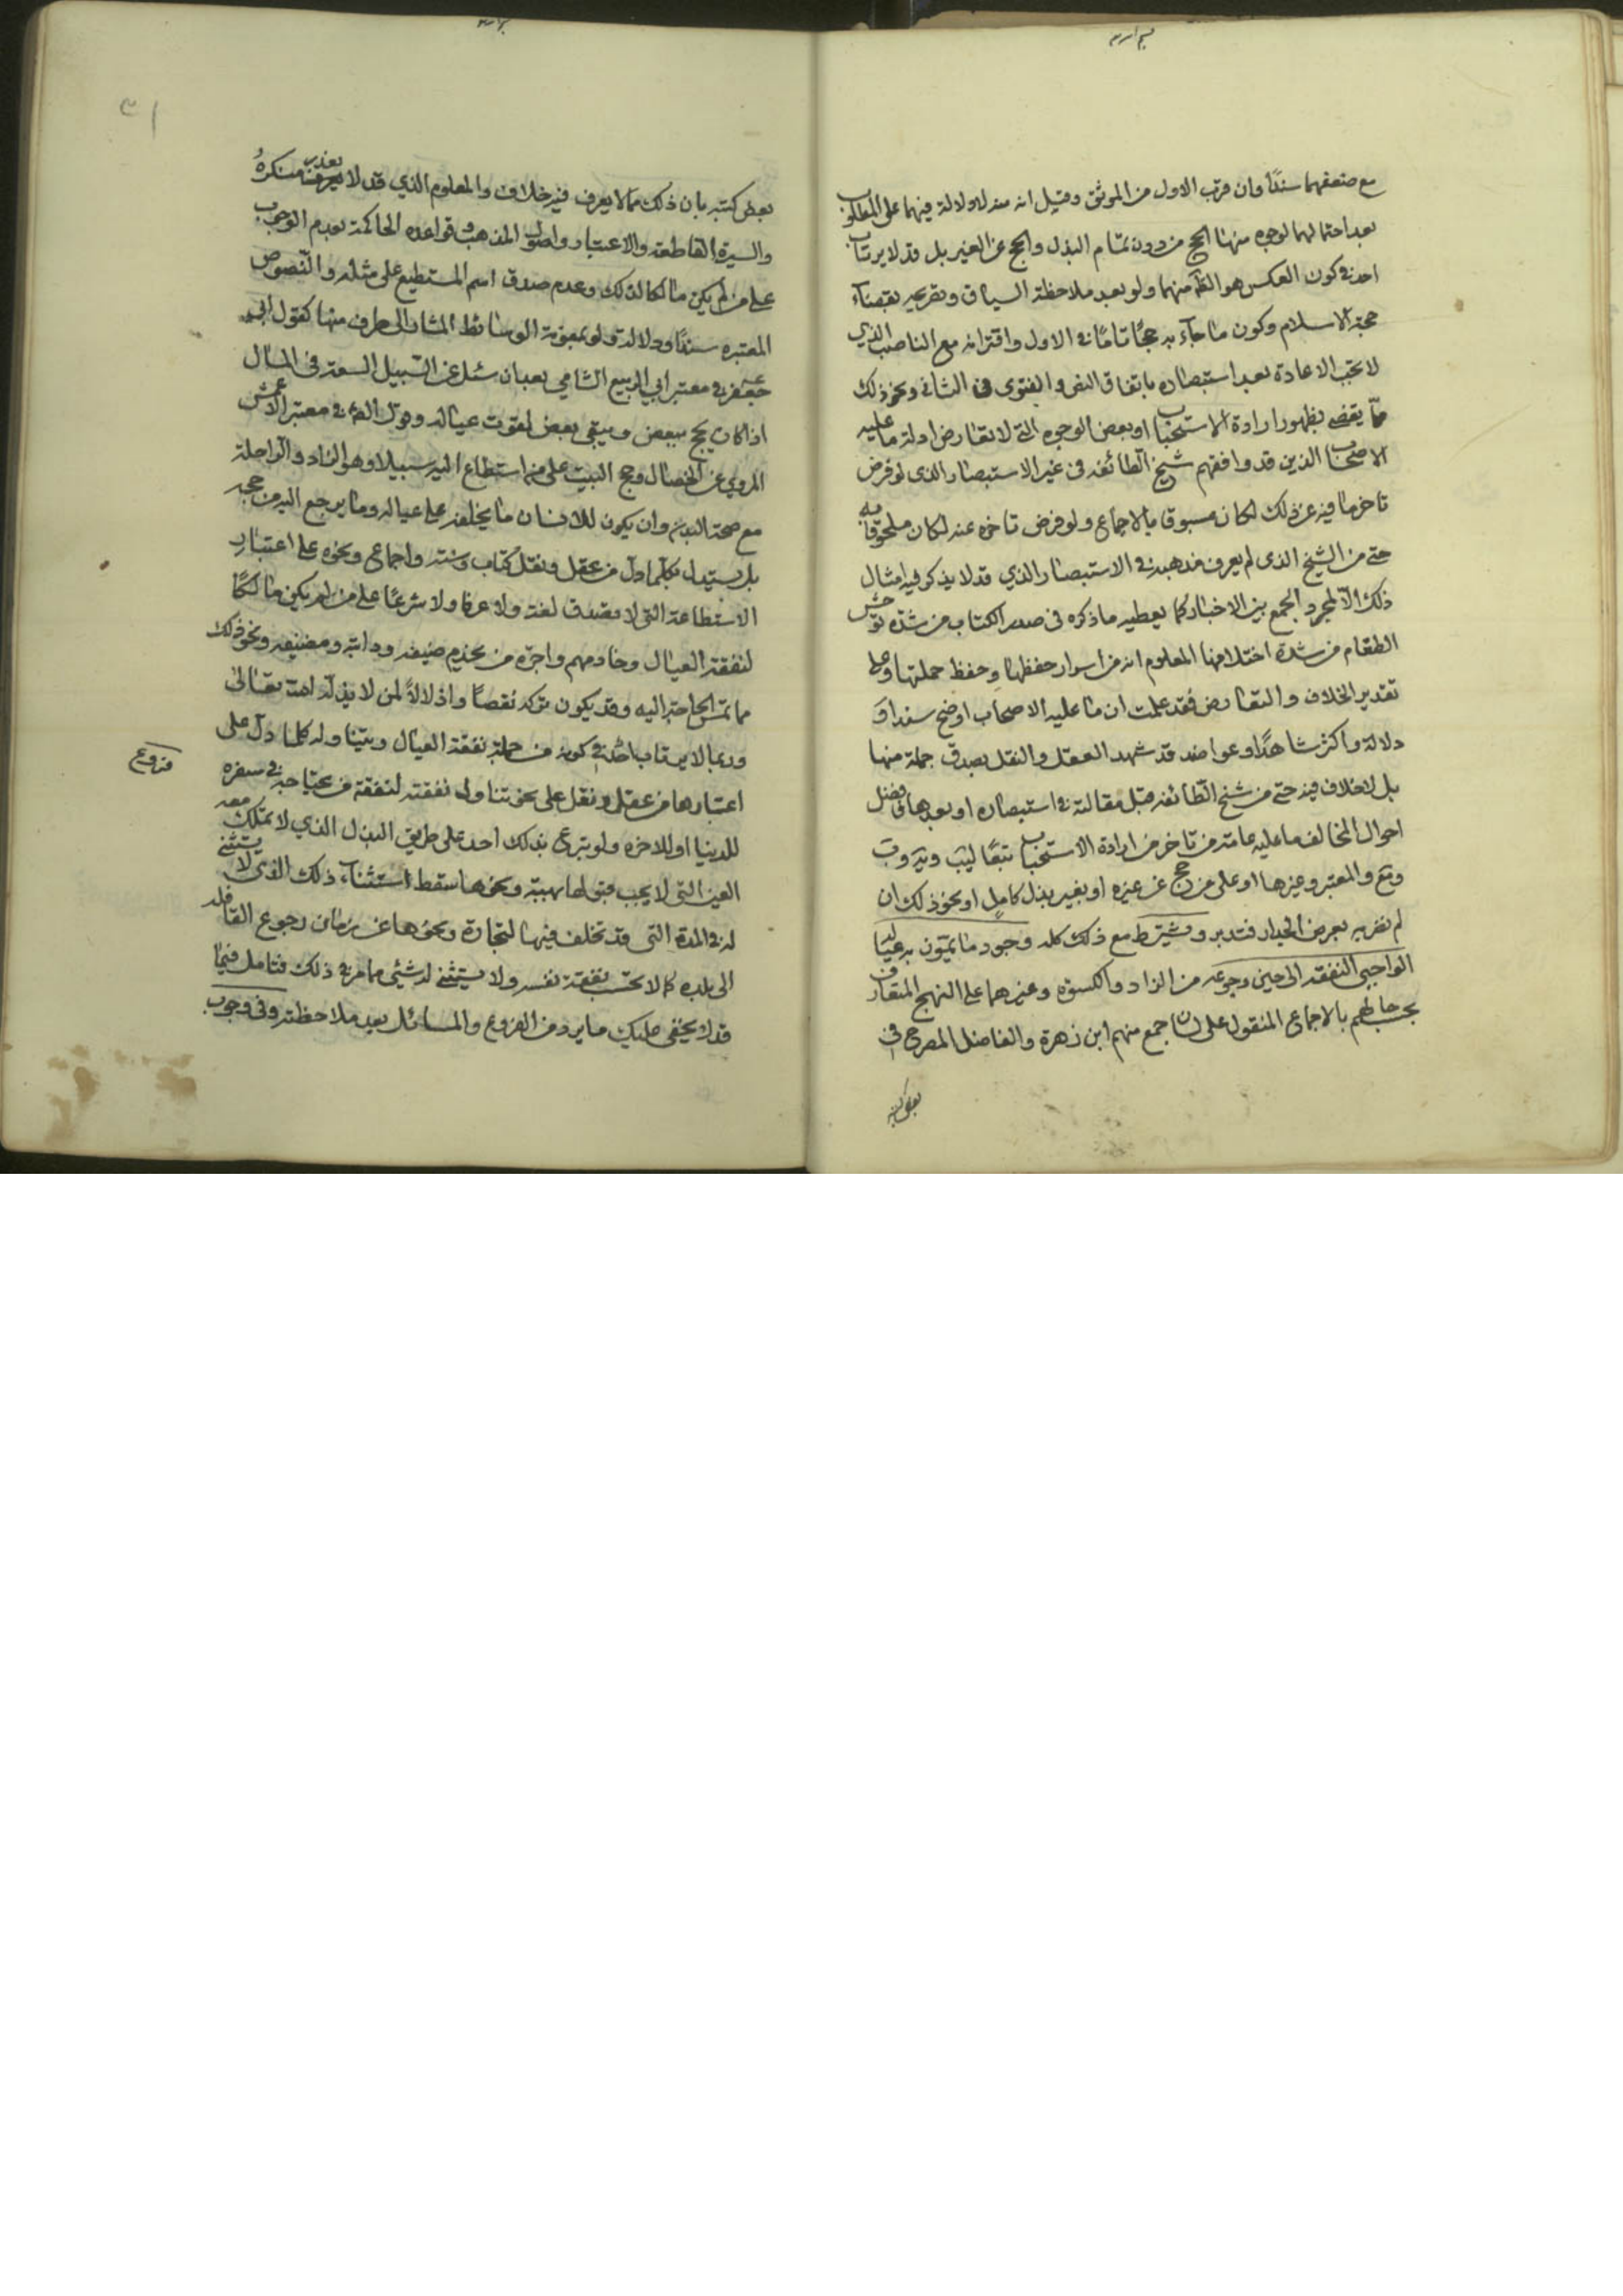 مع ضعفهما سندًا وان قرب الاول من الموثق وقيل انه منه لا دلالة فيهما على المطلوب
بعد احتمالهما لوجوه منها الحج من دون تمام البذل والحج عن الغير بل قد لا يرتاب
احد في كون العكس هو الظ منهما ولو بعد ملاحظة السياق وتصريحه بقضاء
حجة الاسلام وكون ما جاء به حجًا تامًا في الاول واقترانه مع الناصب الذي
لا تجب الاعادة بعد استبصاره باتفاق النص والفتوى في الثاني ونحو ذلك
مما يقضي بظهور ارادة الاستحباب او بعض الوجوه التي لا تعارض ادلة ما عليه
الاصحاب الذين قد وافقهم شيخ الطائفة في غير الاستبصار الذي لو فرض
تاخر ما فيه عن ذلك لكان مسبوقا بالاجماع ولو فرض تاخره عنه لكان ملحوقا به
حتى من الشيخ الذي لم يعرف مذهبه في الاستبصار الذي قد لا يذكر فيه امثال
ذلك الا لمجرد الجمع بين الاخبار كما يعطيه ما ذكره في صدر الكتاب من شدة توحش
الطغام من شدة اختلافها المعلوم انه من اسرار حفظها وحفظ حملتها وعلى
تقدير الخلاف والتعارض فقد علمت ان ما عليه الاصحاب اوضح سندا و
دلالة واكثر شاهدًا وعواضد قد شهد العقل والنقل بصدق جملة منها
بل لا خلاف فيه حتى من شيخ الطائفة قبل مقالته في استبصاره او بعدها فافضل
احوال المخالف ما عليه عامة من تاخر من ارادة الاستحباب تبعًا ليب وير وب
ويع والمعتبر وغيرها او على من حج عن غيره او بغير بذل كامل او نحو ذلك ان
لم نضربه بعرض الجدار فتدبر ويشترط مع ذلك كله وجود ما يمون به عياله
الواجبي النفقة الى حين رجوعه من الزاد والكسوة وغيرهما على النهج المتعارف
بحسب حالهم بالاجماع المنقول على لسان جمع منهم ابن زهرة والفاضل المصرح في
بعض كتبه
بعض كتبه بان ذلك مما لا يعرف فيه خلاف والمعلوم الذي قد لا يعذر منكره
والسيرة القاطعة والاعتبار واصول المذهب وقواعده الحاكمة بعدم الوجوب
على من لم يكن مالكا لذلك وعدم صدق اسم المستطيع على مثله والنصوص
المعتبره سندًا ودلالة ولو بمعونة الوسائط المشار الى طرف منها كقول ابي
جعفر في معتبر ابي الربيع الشامي بعد ان سئل عن السبيل السعة في المال
اذا كان يحج ببعض ويبقي بعض لقوت عياله وقول الص في معتبر الاعمش
المروي عن الخصال وحج البيت على من استطاع اليه سبيلا وهو الزاد والراحلة
مع صحة البدن وان يكون للانسان ما يخلفه على عياله وما يرجع اليه من حجه
بل يستدل بكلما دل من عقل ونقل كتاب وسنة واجماع ونحوه على اعتبار
الاستطاعة التي لا تصدق لغة ولا عرفا ولا شرعًا على من لم يكن مالكًا
لنفقة العيال وخادمهم واجرة من يخدم ضيفه ودابته ومضيفه ونحو ذلك
مما تمس الحاجة اليه وقد يكون تركه نقصًا واذلالًا لمن لا يذله الله تعالى
وربما لا يرتاب احد في كونه من جملة نفقة العيال ويتناوله كلما دل على
اعتبارها من عقل ونقل على نحو تناوله نفقته لنفقة من يحتاجه في سفره
للدنيا او للاخره ولو تبرع بذلك احد على طريق البذل الذي لا تملك معه
العين التي لا يجب قبولها بهبة ونحوها سقط استثناء ذلك الذي لا يستثنى
له في المدة التي قد تخلف فيها لتجارة ونحوها عن زمان رجوع القافلة
الى بلده كما لا تحسب نفقة نفسه ولا يستثنى له شئ مما مر في ذلك فتامل فيما
قد لا يخفى عليك ما يرد من الفروع والمسائل بعد ملاحظته وفى وجوب
فروع
٣١